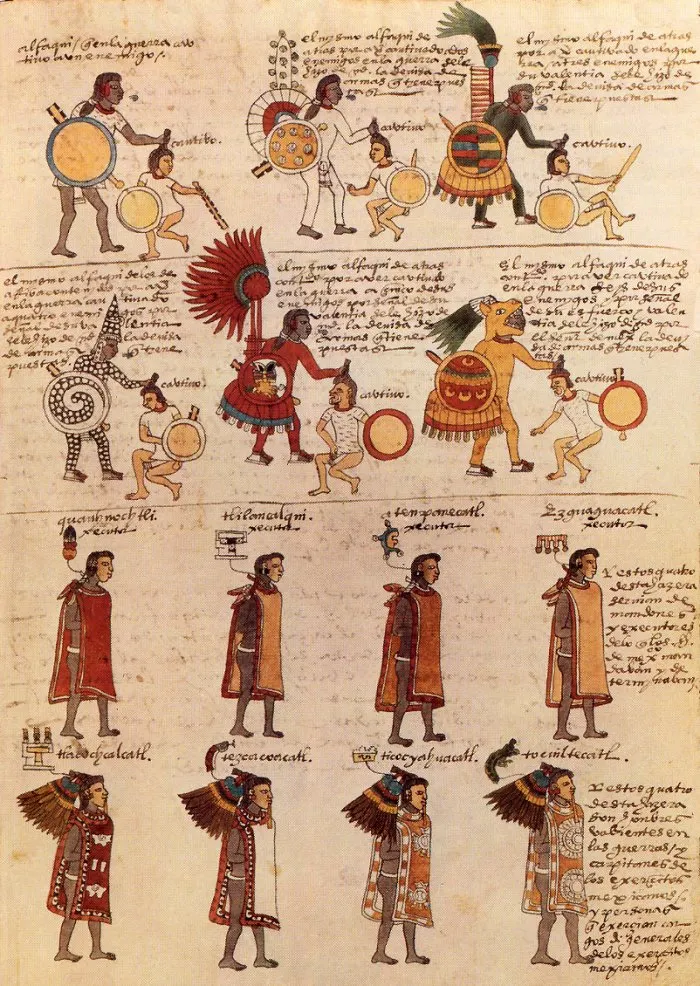 alfaqui / q̃ en la guerra cau
tivo a un enemigo /.
cautivo.
el mysmo alfaqui de
atras por a cautivado dos
enemigos en la guerra sele
dio la devisa de
armas q̃ tiene pues
tas
cautivo
el mysmo alfaqui de atras
por a cautivado en la gue
rra a tres enemigos por
su valentia sele dio de
la devisa de armas
q̃ tiene puestas
cautivo.
el mysmo alfaqui de los de
atras
en la guerra cautivado
a quatro enemigos por
su valentia
la devisa
de armas q̃ tiene
puestas
cautivo.
el mysmo alfaqui de atras
por aver cautivado
en la guerra a cinco de sus
enemigos por señal de su
valentia sele dio de
la devisa de
armas q̃ tiene
puestas
cautivo.
El mysmo alfaqui de atras
por aver cautivado
en la guerra seys de sus
enemigos / y por señal
de su esfuerço / y valen
tia sele dio por
el señor de mexico la devi
sa de armas q̃ tiene pues
tas /
cautivo.
quauhnochtli.
xecutor
tlilancalqui.
xecutor
atenpanecatl.
xecutor
Ezguaguacatl.
xecutor
Y estos quatro
desta hazera
servian de
mandones
y executores
de lo q̃ los S.
de mexico man
davan y de
terminavan
tlacochcalcatl.
tezcacoacatl.
ticocyahuacatl.
tocuiltecatl.
Y estos quatro
desta hazera
son honbres
valientes en
las guerras / y
capitanes de
los exercitos
mexicanos /
y personas
q̃ exercian car
gos de generales
de los exercitos
mexicanos /.